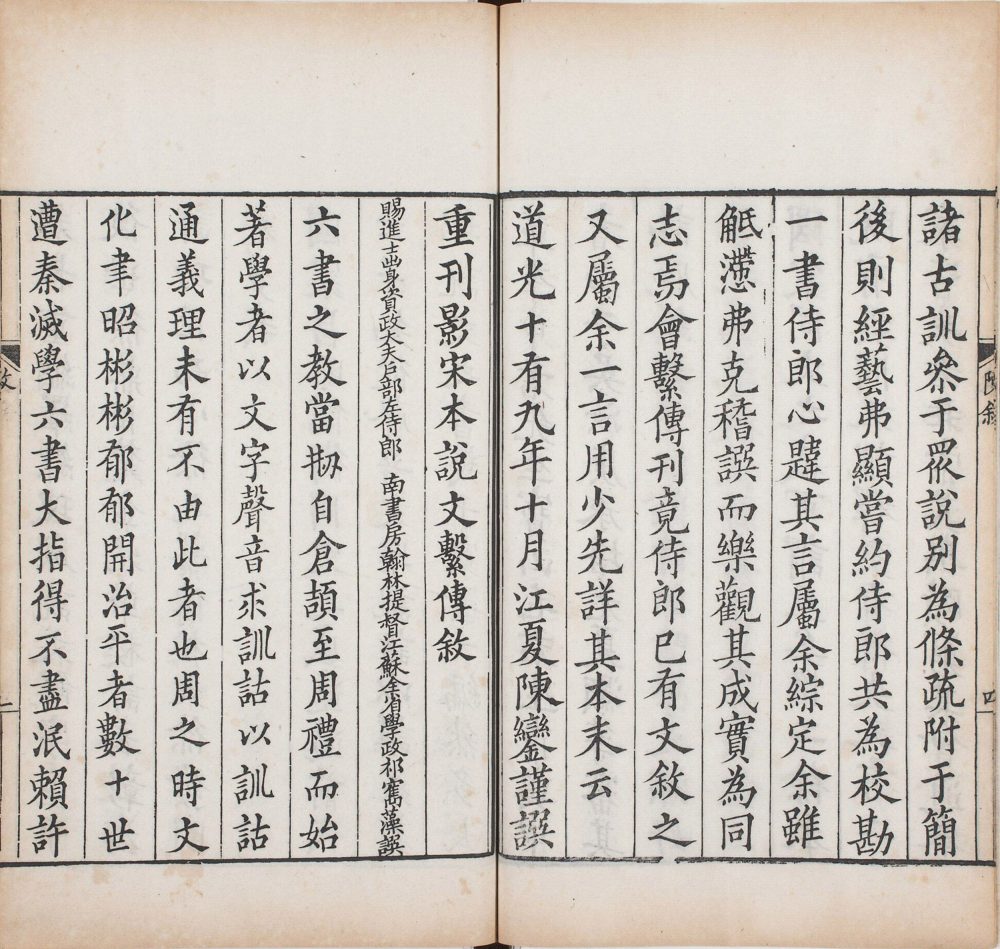 諸古訓叅于眾說別為條疏附于簡
後則經藝弗顯嘗約侍郎共為校勘
一書侍郎心韙其言屬余綜定余雖
觗懘弗克稽譔而樂觀其成實為同
志焉會繫傳刊竟侍郎已有文敘之
又屬余一言用少先詳其本末云
道光十有九年十月江夏陳鑾謹譔
陳敘
四
重刊影宋本說文繫傳敘
賜進士出身資政大夫戶部左侍郎 南書房翰林提督江蘇全省學政祁寯藻譔
六書之教當刱自倉頡至周禮而始
著學者以文字聲音求訓詁以訓詁
通義理未有不由此者也周之時文
化聿昭彬彬郁郁開治平者數十世
遭秦滅學六書大指得不盡泯賴許